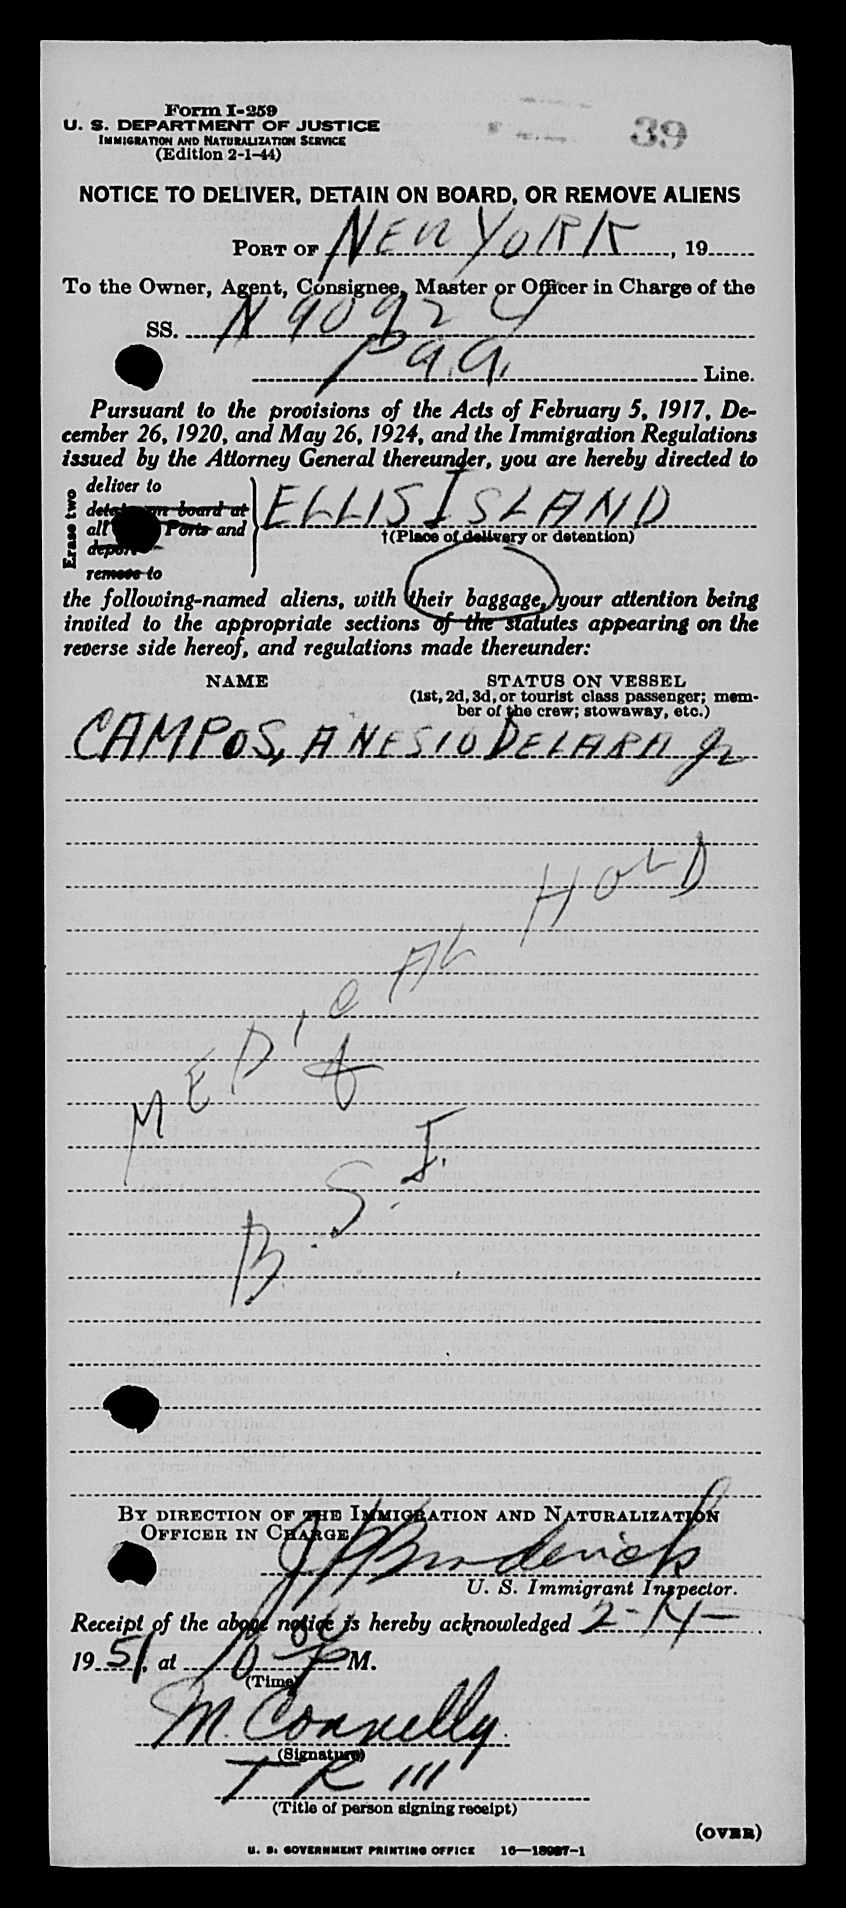 Form I-259
U. S. DEPARTMENT OF JUSTICE
IMMIGRATION AND NATURALIZATION SERVICE
(Edition 2-1-44)
39
NOTICE TO DELIVER, DETAIN ON BOARD, OR REMOVE ALIENS
PORT OF NEW YORK, 19
To the Owner, Agent, Consignee, Master or Officer in Charge of the
SS. N 90924
P.A.A. Line.
Pursuant to the provisions of the Acts of February 5, 1917, De-
cember 26, 1920, and May 26, 1924, and the Immigration Regulations
issued by the Attorney General thereunder, you are hereby directed to
Erase two
deliver to
detain on board at
all Ports and
deport
remove to
ELLIS ISLAND
†(Place of delivery or detention)
the following-named aliens, with their baggage, your attention being
invited to the appropriate sections of the statutes appearing on the
reverse side hereof, and regulations made thereunder:
NAME STATUS ON VESSEL
(1st, 2d, 3d, or tourist class passenger; mem-
ber of the crew; stowaway, etc.)
CAMPOS, ANESIO DELARA Jr
MEDICAL HOLD
&
B.S.I.
BY DIRECTION OF THE IMMIGRATION AND NATURALIZATION
OFFICER IN CHARGE
Broderick
U. S. Immigrant Inspector.
Receipt of the above notice is hereby acknowledged 2-14-
1951, at 10 P M.
(Time)
M. Connelly
(Signature)
T R III
(Title of person signing receipt)
(OVER)
U. S. GOVERNMENT PRINTING OFFICE 16—18987-1